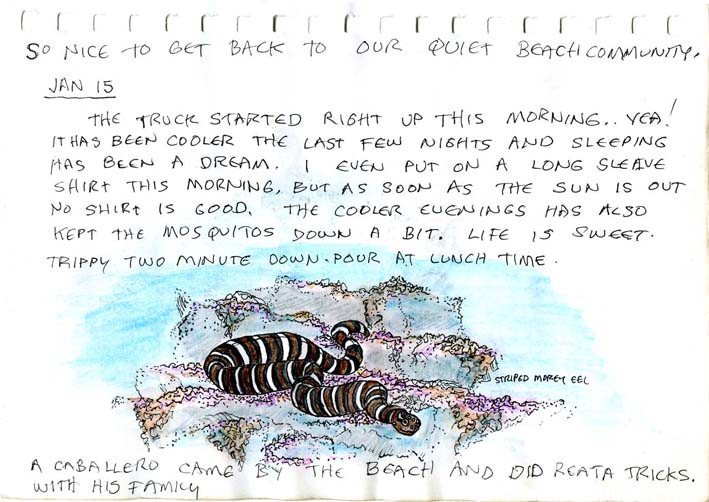 SO NICE TO GET BACK TO OUR QUIET BEACH COMMUNITY.
JAN 15
THE TRUCK STARTED RIGHT UP THIS MORNING.. YEA!
IT HAS BEEN COOLER THE LAST FEW NIGHTS AND SLEEPING
HAS BEEN A DREAM. I EVEN PUT ON A LONG SLEAVE
SHIRT THIS MORNING, BUT AS SOON AS THE SUN IS OUT
NO SHIRT IS GOOD. THE COOLER EVENINGS HAS ALSO
KEPT THE MOSQUITOS DOWN A BIT. LIFE IS SWEET.
TRIPPY TWO MINUTE DOWN-POUR AT LUNCH TIME.
STRIPED MOREY EEL
A CABALLERO CAME BY THE BEACH AND DID REATA TRICKS.
WITH HIS FAMILY